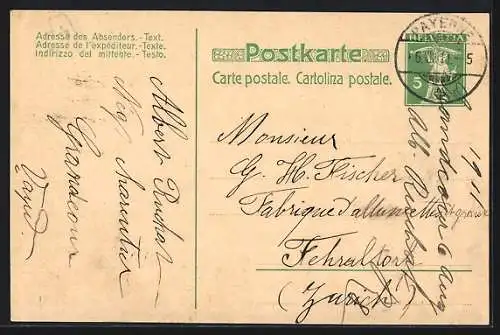 Adresse des Absenders.-Text.
Adresse de l'expéditeur.-Texte.
Indirizzo del mittente.-Testo.
Postkarte
Carte postale. Cartolina postale.
PAYERNE
5
Albert Ruchat
Nég
Grandcour
Vaud.
Monsieur
G. H. Fischer
Fabrique d'allumettes
Fehraltorf
(Zurich)
1911
Grandcour 6 aug
Alb. Ruchat